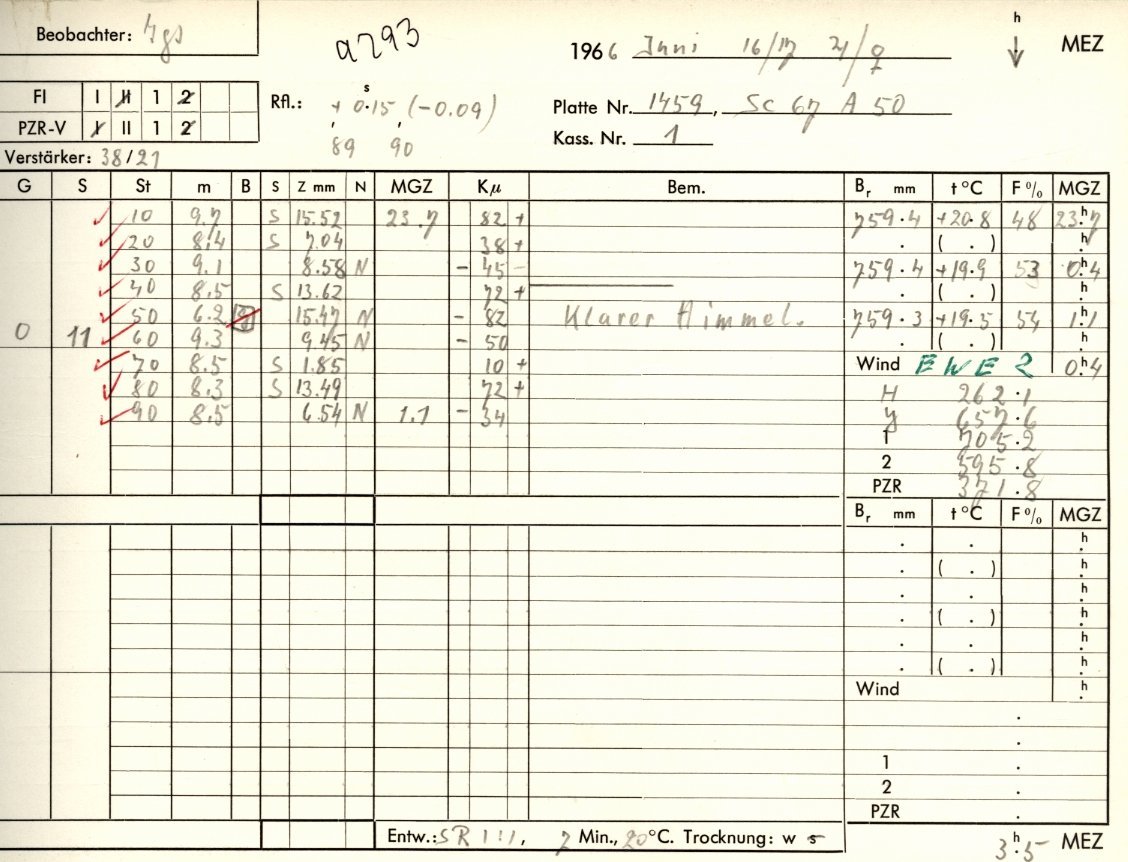 Beobachter: Hgs
a293
1966 Juni 16/17 ♃/♀ h ↓ MEZ
FI I II 1 2
Rfl.: + 0.15 s (-0.09)
Platte Nr. 1459, Sc 67 A 50
PZR-V I II 1 2
89 90
Kass. Nr. 1
Verstärker: 38/21
G S St m B S Z mm N MGZ Kμ Bem. Br mm t °C F % MGZ
10 9.7 S 15.52 23.7 82 + 759.4 +20.8 48 23.h7
20 8.4 S 7.04 38 + . ( . ) h.
30 9.1 8.58 N - 45 - 759.4 +19.9 53 0.h4
40 8.5 S 13.62 72 + . ( . ) h.
50 6.2 15.47 N - 82 Klarer Himmel. 759.3 +19.5 54 1.h1
0 11 60 9.3 9.45 N - 50 . ( . ) h.
70 8.5 S 1.85 10 + Wind EWE 2 0.h4
80 8.3 S 13.49 72 + H 262.1
90 8.5 6.54 N 1.1 - 34 y 657.6
1 705.2
2 595.8
PZR 371.8
Br mm t °C F % MGZ
. . h.
. ( . ) h.
. . h.
. ( . ) h.
. . h.
. ( . ) h.
Wind h.
.
.
1 .
2 .
PZR .
Entw.: SR 1:1, 7 Min., 20 °C. Trocknung: w s
3.h5 MEZ